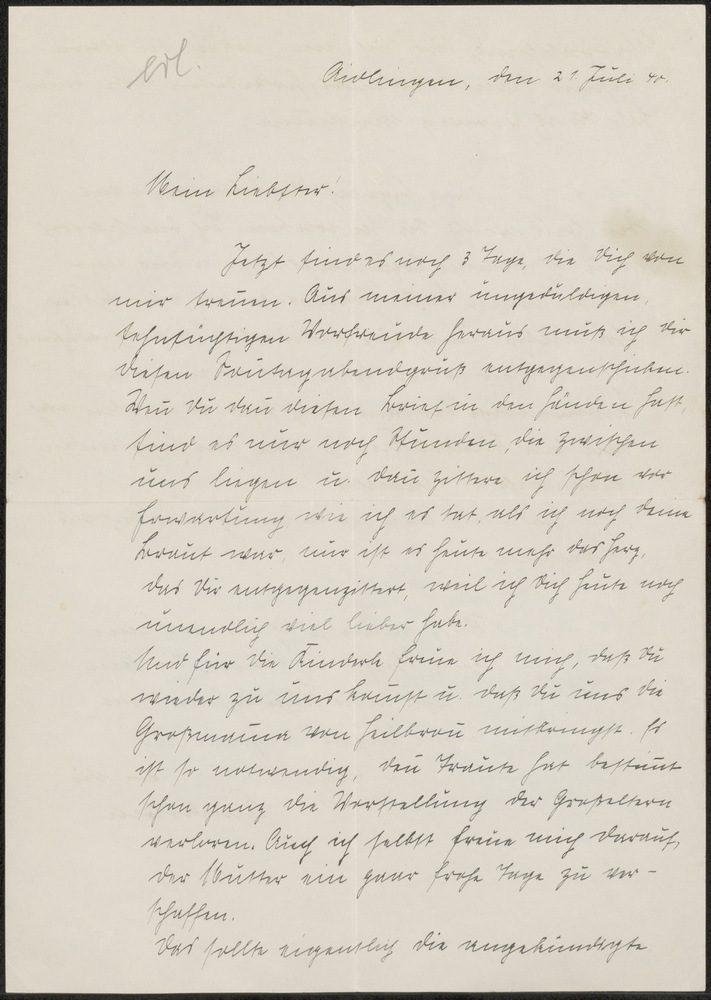 erl.
Aidlingen, den 21. Juli 40.
Mein Liebster!
Jetzt sind es noch 3 Tage, die Dich von
mir trennen. Aus meiner ungeduldigen,
sehnsüchtigen Vorfreude heraus muß ich dir
diesen Sontagabendgruß entgegenschicken.
Wen̄ Du dan̄ diesen Brief in den Händen hast,
sind es nur noch Stunden, die zwischen
uns liegen u. dan̄ zittere ich schon vor
Erwartung wie ich es tat, als ich noch deine
Braut war, nur ist es heute mehr das Herz,
das Dir entgegenzittert, weil ich Dich heute noch
unendlich viel lieber habe.
Und für die Kinderle freue ich mich, daß Du
wieder zu uns kom̄st u. daß Du uns die
Großmam̄a von Heilbron̄ mitbringst. Es
ist so notwendig, den̄ Traute hat bestim̄t
schon ganz die Vorstellung der Großeltern
verloren. Auch ich selbst freue mich darauf,
der Mutter ein paar frohe Tage zu ver-
schaffen.
Das sollte eigentlich die angekündigte